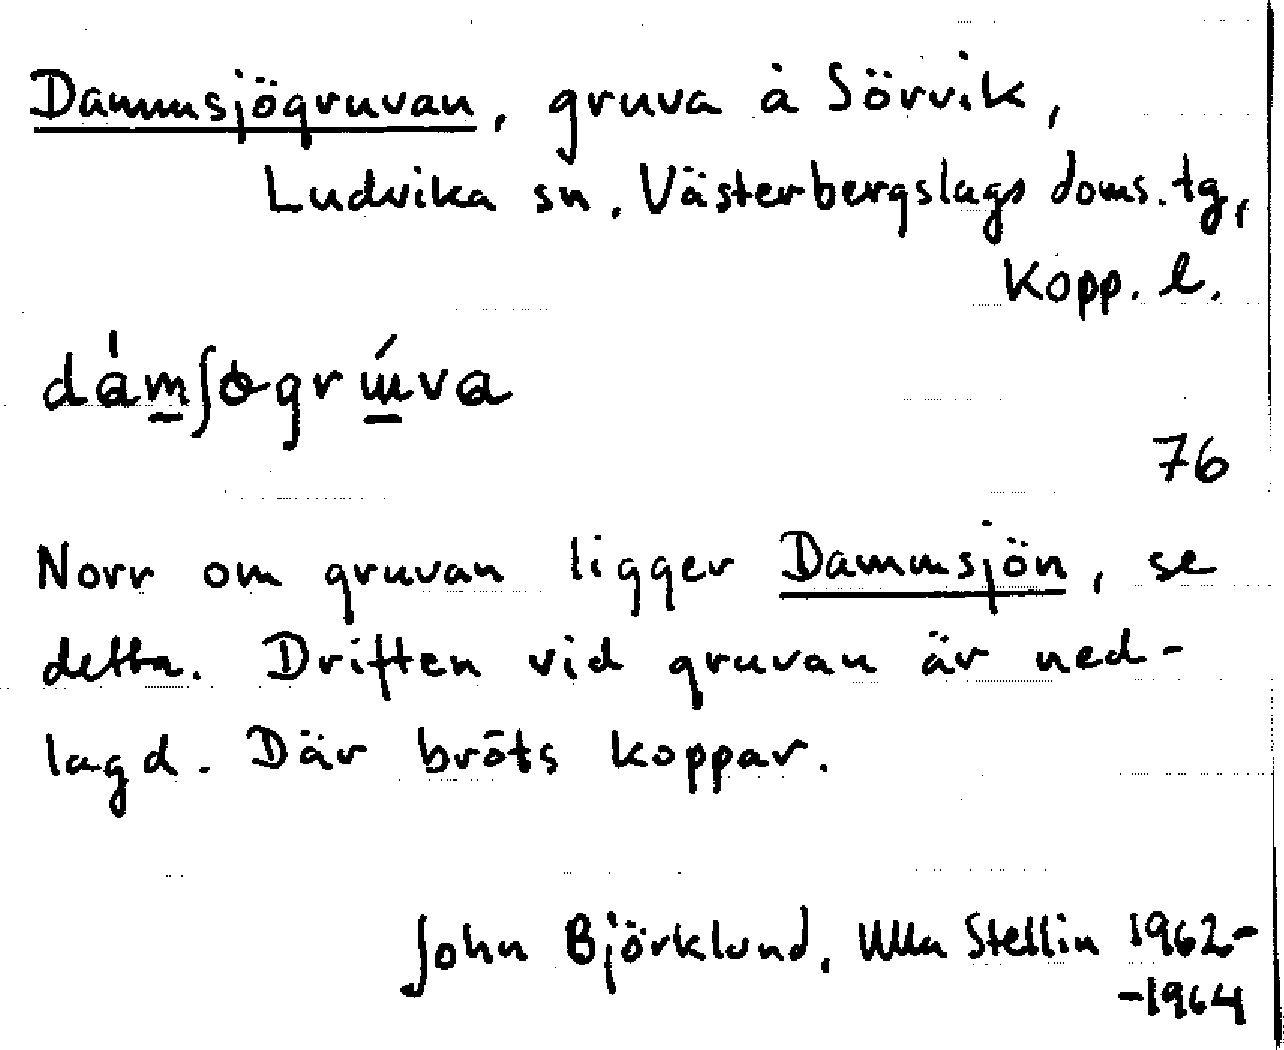 Dammsjögruvan, gruva å Sörvik,
Ludvika sn, Västerbergslags doms. tg,
Kopp. l.
76
Norr om gruvan ligger Dammsjön, se
detta. Driften vid gruvan är ned-
lagd. Där bröts koppar.
John Björklund, Ulla Stellin 1962-
-1964